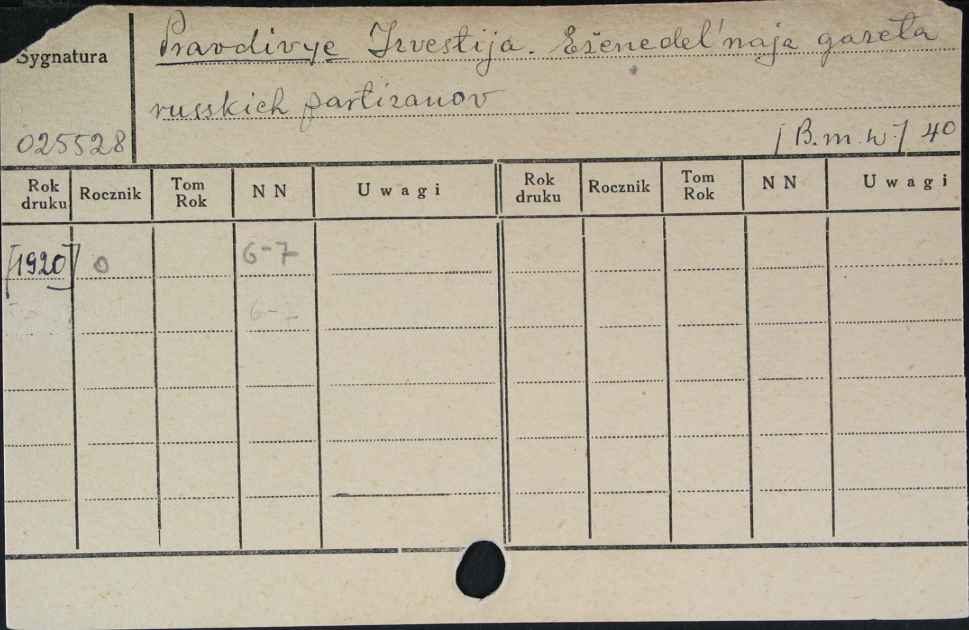 Pravdivye Izvestija. Eženedel'naja gazeta
russkich partizanov
Sygnatura
025528
[B.m.w.] 4o
Rok druku Rocznik Tom Rok NN Uwagi Rok druku Rocznik Tom Rok NN Uwagi
[1920] 0 6-7
6-